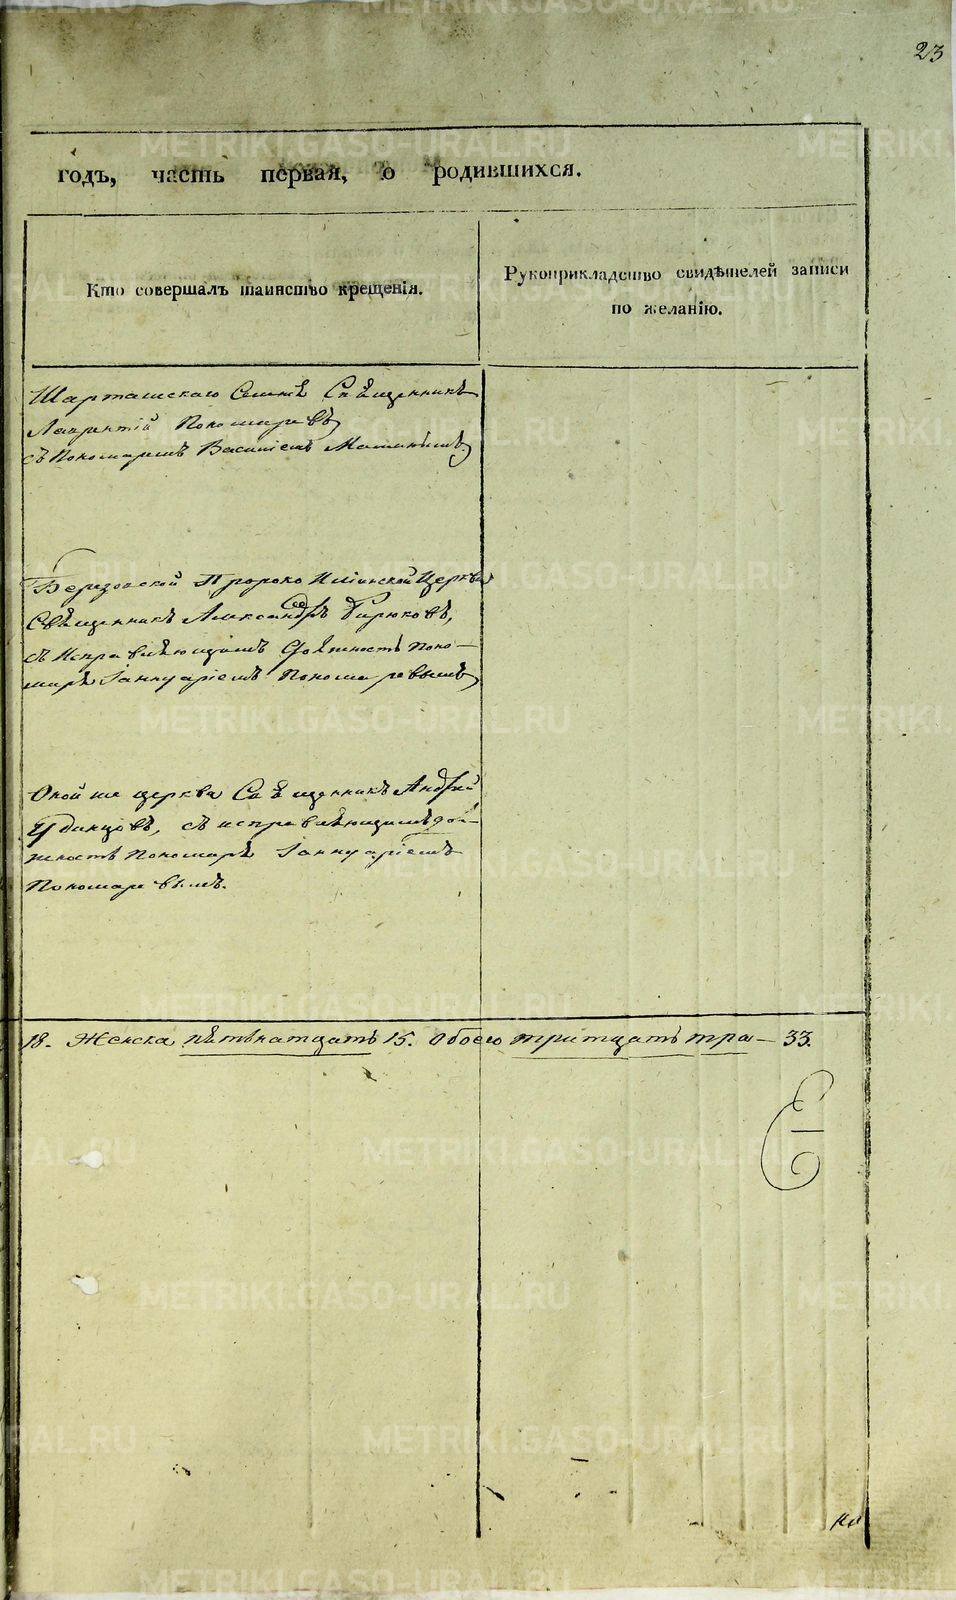 23
годъ, часть первая, о родившихся.
Кто совершалъ таинство крещенія.
Рукоприкладство свидѣтелей записи
по желанію.
Шарташскаго Священникъ
Лаврентій Пономаревъ
съ Пономаремъ Василіемъ
Березовской Пророко Илiинской Церкви
Священникъ Александръ Бирюковъ,
съ исправляющимъ должность поно-
маря Іаннуаріемъ Пономаревымъ
Оной же церкви Священникъ Андрей
Удинцовъ, съ исправляющимъ дол-
жность Пономаря Іаннуаріемъ
Пономаревымъ.
18. Женска пятьнатцать 15. Обоего тритцать три — 33.